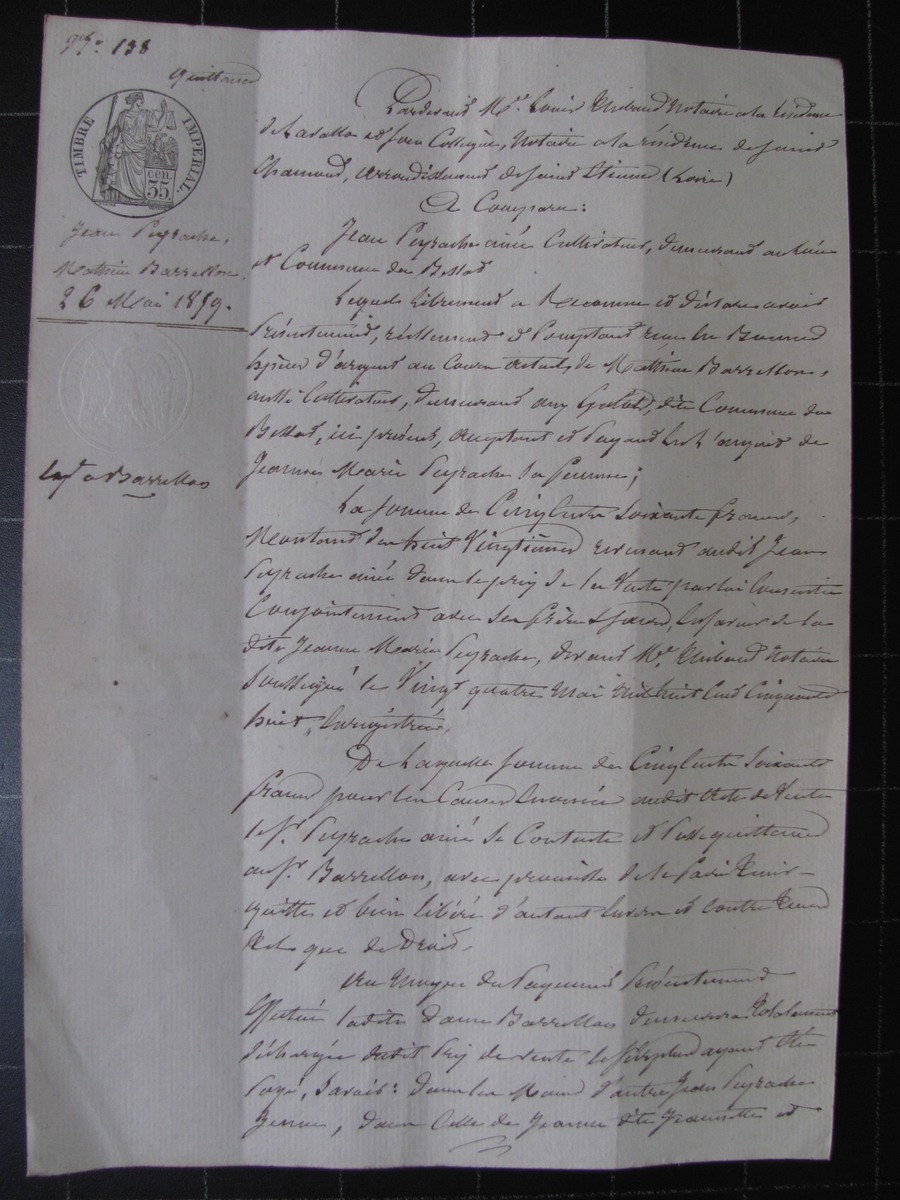 138
quittance
TIMBRE IMPERIAL.
35 cen.
Jean Peyrache,
Mathieu Barrellon.
26 Mai 1859.
à Barrellon
Pardevant Me. Louis Thibaud Notaire à la résidence
de Lavalla et Jean Notaire à la résidence de Saint
Chamond, arrondissement de Saint Etienne (Loire)
A Comparu:
Jean Peyrache ainé Cultivateur, demeurant au
et Commune du Bessat
Lequel librement a Reconnu et déclare avoir
Présentement, réellement et Comptant reçu en Bonnes
Espèces d'argent au Cours actuel, de Mathieu Barrellon,
aussi Cultivateur, demeurant aux dite Commune du
Bessat, ici présent, acceptant et Payant de l'argent de
Jeanne Marie Peyrache sa femme;
La somme de Cinq Cents Soixante francs,
Montant des huit Vingtièmes revenant audit Jean
Peyrache ainé dans le prix de la Vente par lui Consentie
Conjointement avec ses frères & sœurs, en faveur de la
dite Jeanne Marie Peyrache, devant Me. Thibaud Notaire
Soussigné le Vingt quatre Mai Mil huit Cent Cinquante
huit, Enregistrée.
De Laquelle somme de Cinq Cents Soixante
francs pour les Causes énoncées audit Acte de Vente
le Sr. Peyrache ainé se Contente et Passe quittance
au Sr. Barrellon, avec promesse de le faire tenir
quitte et bien libéré d'autant envers et contre tous
tels que de Droit.
Au Moyen du Payement Présentement
Effectué ladite dame Barrellon demeurera totalement
déchargée dudit Prix de vente le surplus ayant été
Payé, Savoir: dans les Mains d'autre Jean Peyrache
Jeune, dans Celles de Jeanne dite Jeannette et